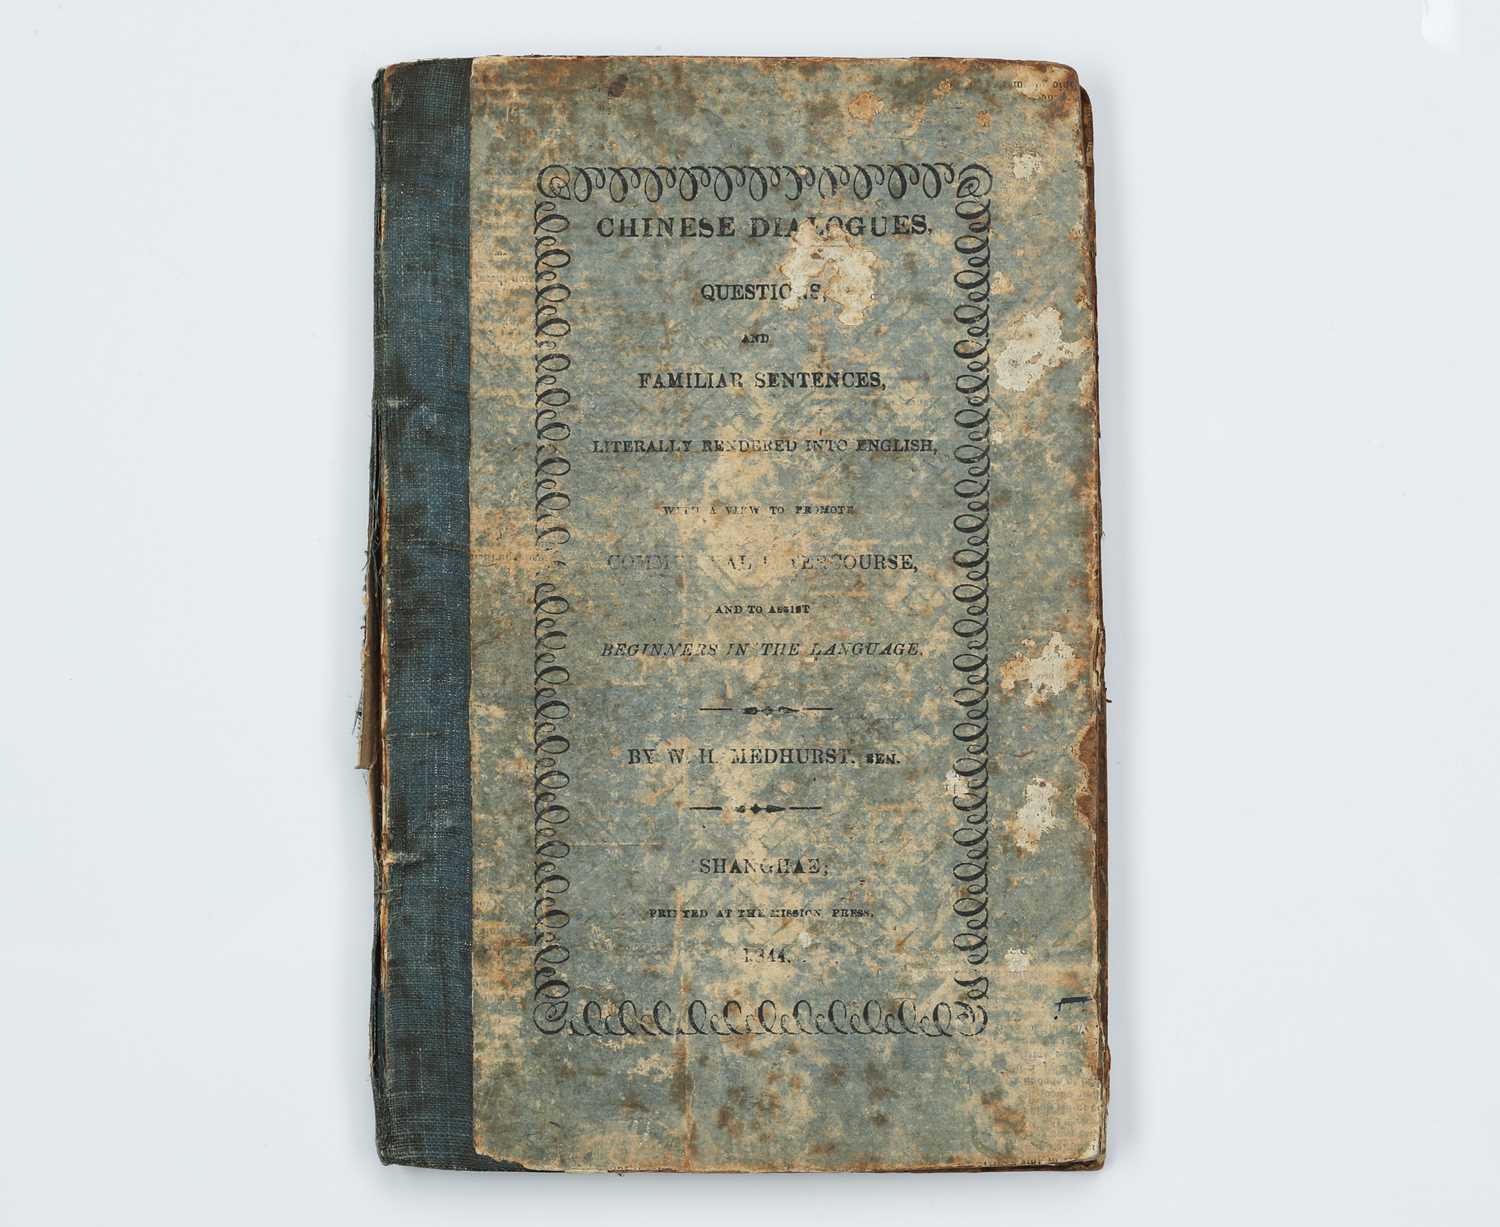 CHINESE DIALOGUES,
QUESTIONS,
AND
FAMILIAR SENTENCES,
LITERALLY RENDERED INTO ENGLISH,
WITH A VIEW TO PROMOTE
COMMERCIAL INTERCOURSE,
AND TO ASSIST
BEGINNERS IN THE LANGUAGE.
BY W. H. MEDHURST. SEN.
SHANGHAE;
PRINTED AT THE MISSION PRESS.
1844.